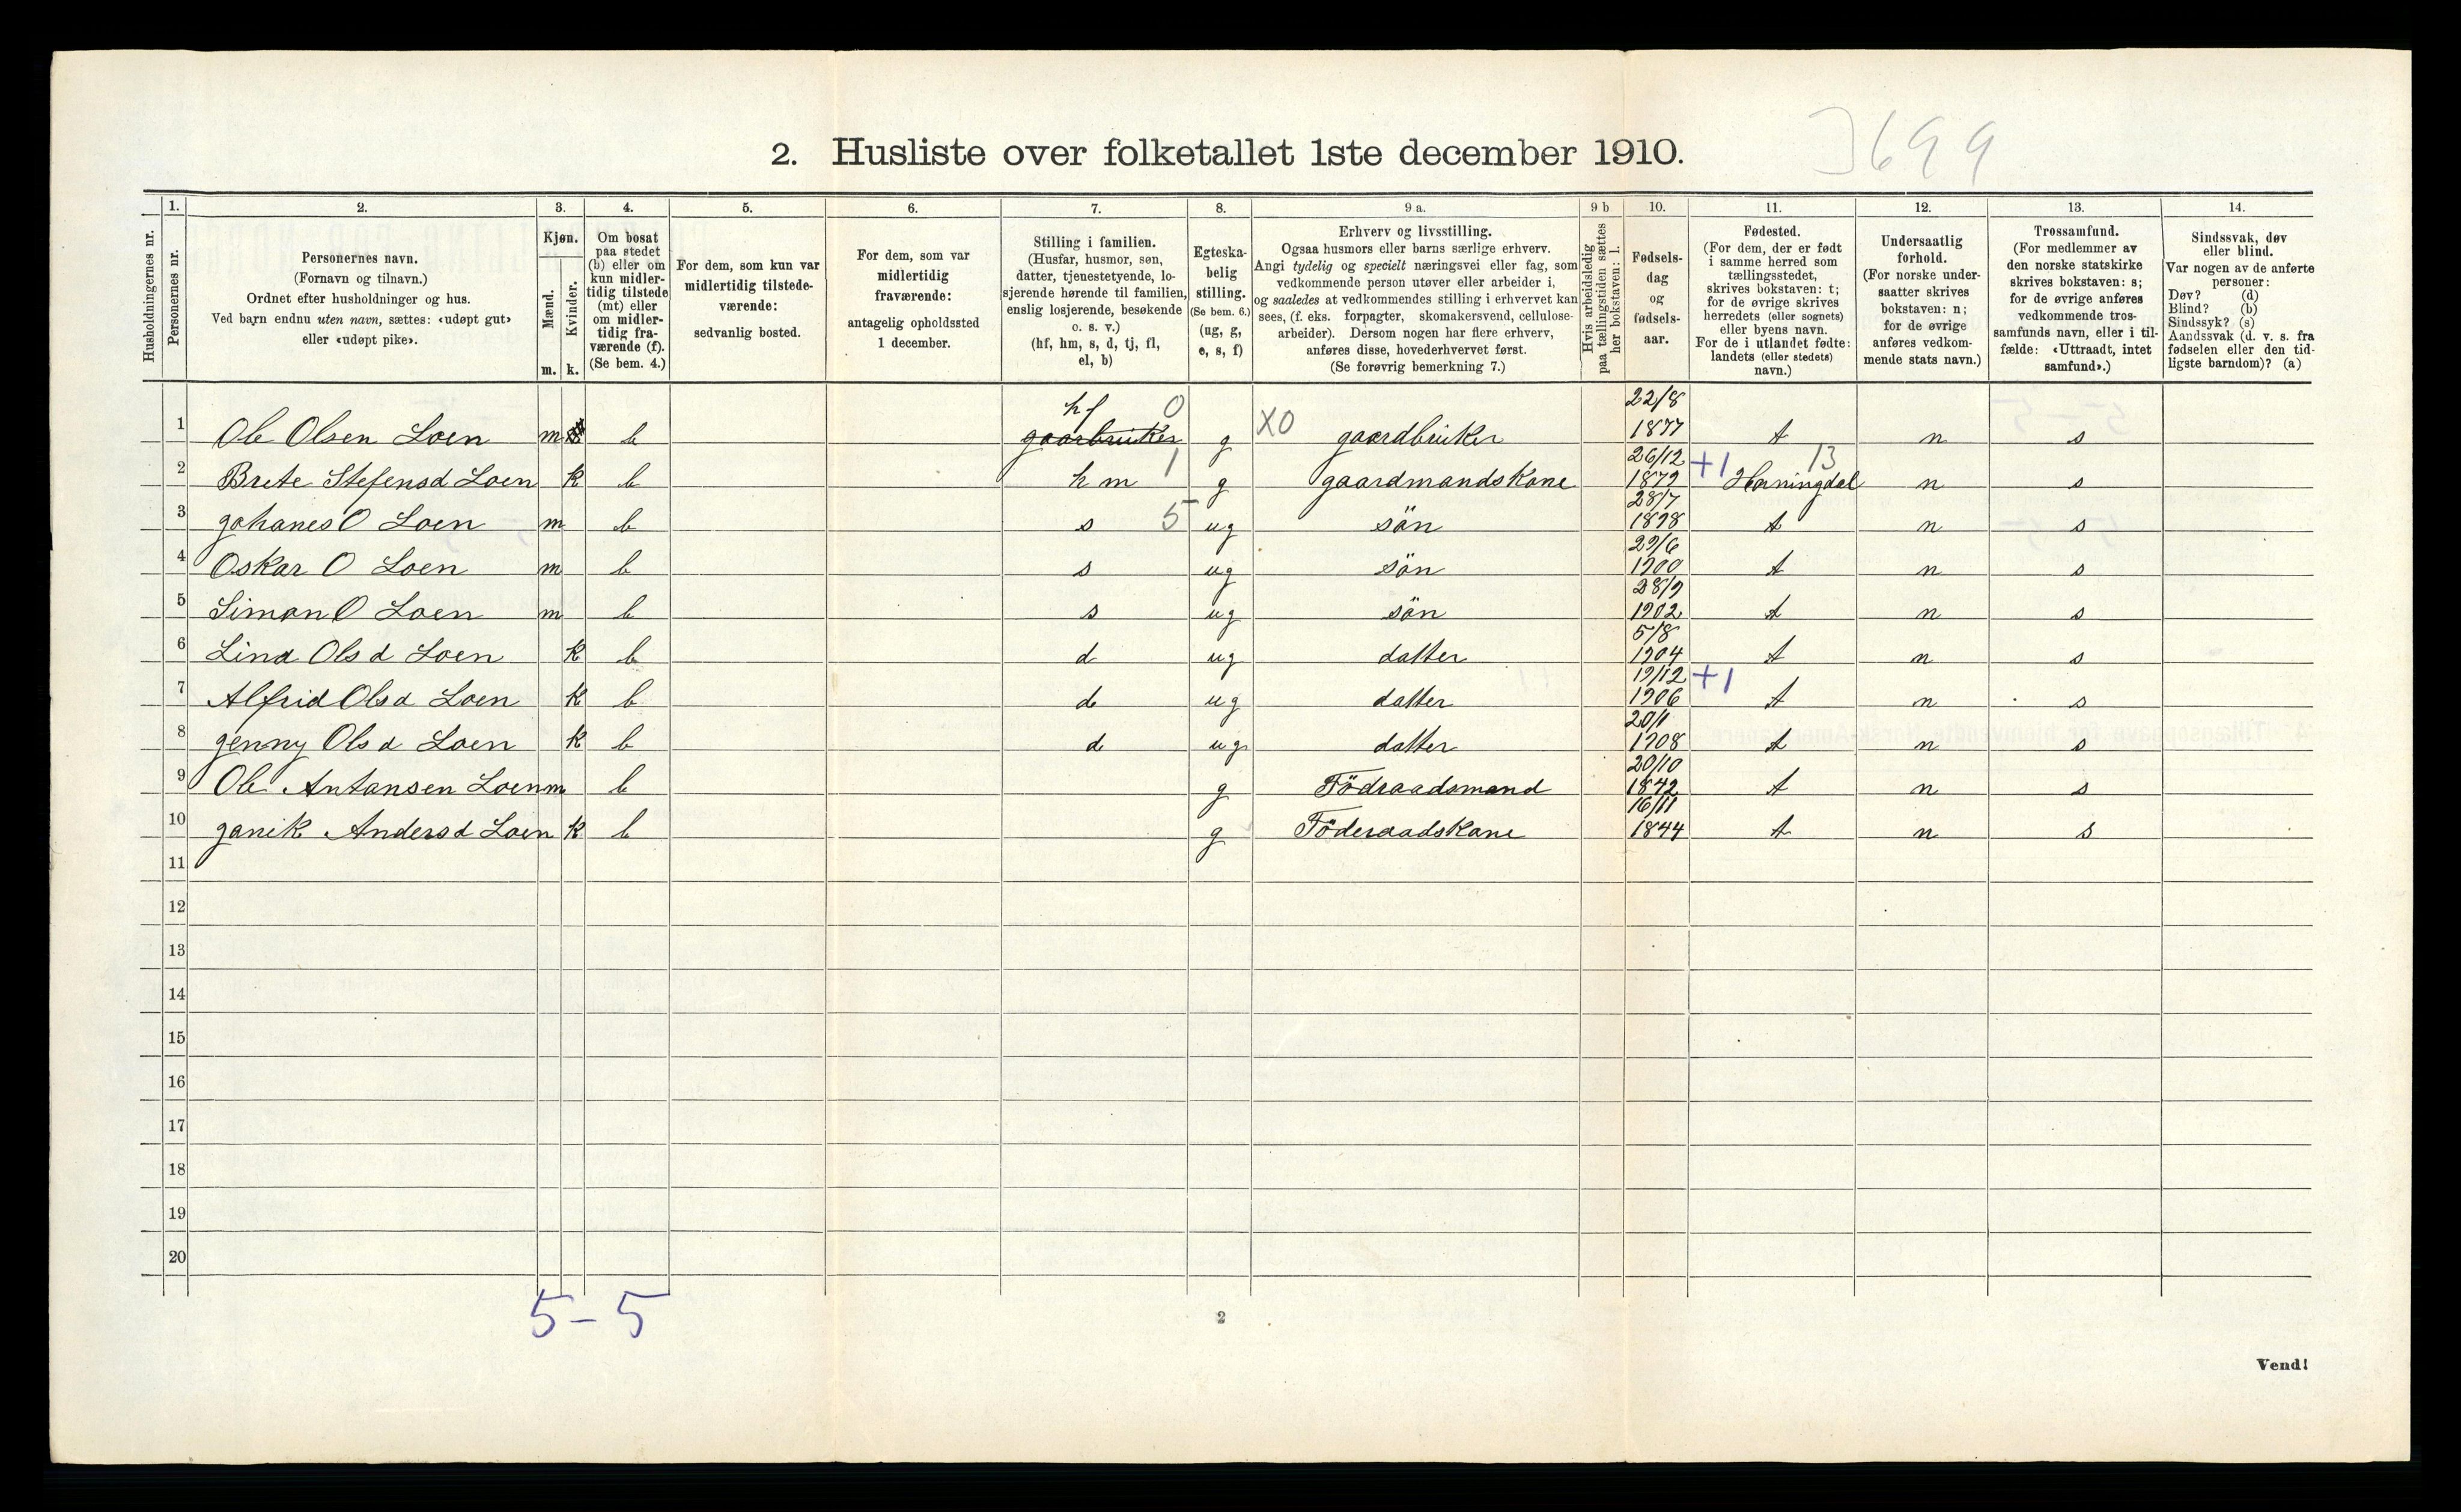 2. Husliste over folketallet 1ste december 1910.
3699
Husholdningernes nr.
1.
Personernes nr.
2.
Personernes navn.
(Fornavn og tilnavn.)
Ordnet efter husholdninger og hus.
Ved barn endnu uten navn, sættes: «udøpt gut»
eller «udøpt pike».
3.
Kjøn.
Mænd.
Kvinder.
m. k.
4.
Om bosat
paa stedet
(b) eller om
kun midler-
tidig tilstede
(mt) eller
om midler-
tidig fra-
værende (f).
(Se bem. 4.)
5.
For dem, som kun var
midlertidig tilstede-
værende:
sedvanlig bosted.
6.
For dem, som var
midlertidig
fraværende:
antagelig opholdssted
1 december.
7.
Stilling i familien.
(Husfar, husmor, søn,
datter, tjenestetyende, lo-
sjerende hørende til familien,
enslig losjerende, besøkende
o. s. v.)
(hf, hm, s, d, tj, fl,
el, b)
8.
Egteska-
belig
stilling.
(Se bem. 6.)
(ug, g,
e, s, f)
9 a.
Erhverv og livsstilling.
Ogsaa husmors eller barns særlige erhverv.
Angi tydelig og specielt næringsvei eller fag, som
vedkommende person utøver eller arbeider i,
og saaledes at vedkommendes stilling i erhvervet kan
sees, (f. eks. forpagter, skomakersvend, cellulose-
arbeider). Dersom nogen har flere erhverv,
anføres disse, hovederhvervet først.
(Se forøvrig bemerkning 7.)
9 b
Hvis arbeidsledig
paa tællingstiden sættes
her bokstaven: l.
10.
Fødsels-
dag
og
fødsels-
aar.
11.
Fødested.
(For dem, der er født
i samme herred som
tællingsstedet,
skrives bokstaven: t;
for de øvrige skrives
herredets (eller sognets)
eller byens navn.
For de i utlandet fødte:
landets (eller stedets)
navn.)
12.
Undersaatlig
forhold.
(For norske under-
saatter skrives
bokstaven: n;
for de øvrige
anføres vedkom-
mende stats navn.)
13.
Trossamfund.
(For medlemmer av
den norske statskirke
skrives bokstaven: s;
for de øvrige anføres
vedkommende tros-
samfunds navn, eller i til-
fælde: «Uttraadt, intet
samfund».)
14.
Sindssvak, døv
eller blind.
Var nogen av de anførte
personer:
Døv? (d)
Blind? (b)
Sindssyk? (s)
Aandssvak (d. v. s. fra
fødselen eller den tid-
ligste barndom)? (a)
hf 0 22/8
1 Ole Olsen Loen m b gaarbruker g X0 gaardbruker 1877 t n s
1 26/12 +1 13
2 Brete Stefensd Loen k b h m g gaardmandskone 1879 Horningdal n s
28/7
3 johanes O Loen m b s 5 ug sön 1898 t n s
29/6
4 Oskar O Loen m b s ug sön 1900 t n s
28/9
5 Simon O Loen m b s ug sön 1902 t n s
5/8
6 Lina Olsd Loen k b d ug datter 1904 t n s
19/12 +1
7 Alfrid Olsd Loen k b d ug datter 1906 t n s
20/1
8 jenny Olsd Loen k b d ug datter 1908 t n s
20/10
9 Ole Antonsen Loen m b g Födraadsmand 1842 t n s
16/11
10 janik Andersd Loen k b g Föderaadskone 1844 t n s
11
12
13
14
15
16
17
18
19
20
5 - 5
2
Vend!